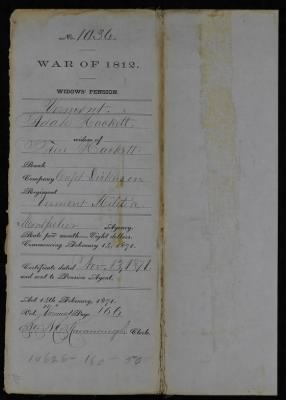 No. 1036.
WAR OF 1812.
WIDOWS' PENSION.
Vermont.
Hackett
widow of
Hackett
Rank
Company Capt Dickinson
Regiment
Vermont Militia
Montpelier Agency.
Rate per month, Eight dollars.
Commencing February 14, 1871.
Certificate dated Nov. 13, 1871
and sent to Pension Agent.
Act 14th February, 1871.
Vol. Vermont Page 166
Clerk.